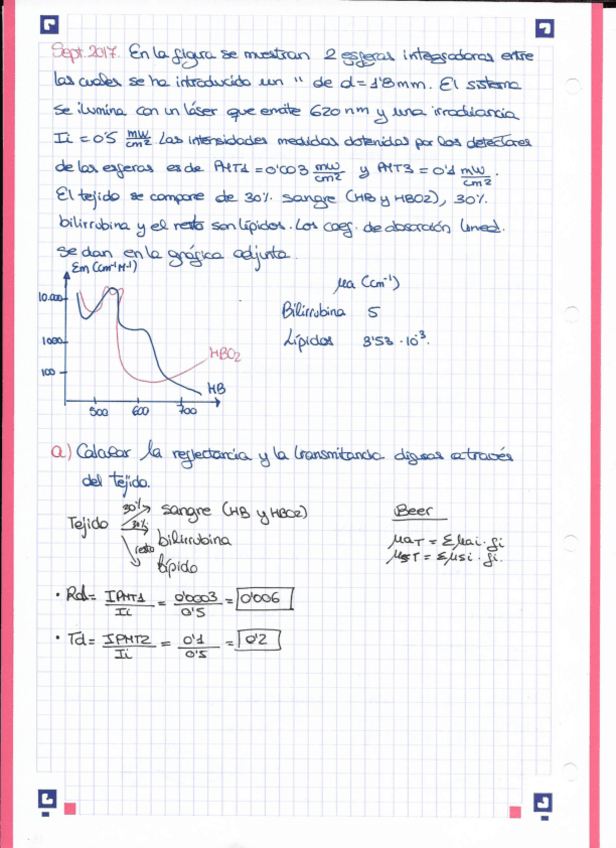 Sept. 2017. En la figura se muestran 2 esferas integradoras entre
las cuales se ha introducido un " de d = 1'8 mm. El sistema
se ilumina con un láser que emite 620 nm y una irradiancia
Ii = 0'5 mW/cm². Las intensidades medidas obtenidas por los detectores
de las esferas es de PMT1 = 0'003 mW/cm² y PMT3 = 0'1 mW/cm².
El tejido se compone de 30% sangre (HB y HBO2), 30%
bilirrubina y el resto son lípidos. Los coef. de absorción
se dan en la gráfica adjunta.
Em (cm⁻¹M⁻¹)
10.000
1000
100
500 600 700
HBO2
HB
μa (cm⁻¹)
Bilirrubina 5
Lípidos 3'53 · 10⁻³.
a) Calcular la reflectancia y la transmitancia difusas a través
del tejido.
Tejido
30% sangre (HB y HBO2)
30% bilirrubina
resto lípido
Beer
μaT = Σμai · fi
μsT = Σμsi · fi.
• Rd = IPMT1/Ii = 0'0003/0'5 = 0'006
• Td = IPMT2/Ii = 0'1/0'5 = 0'2